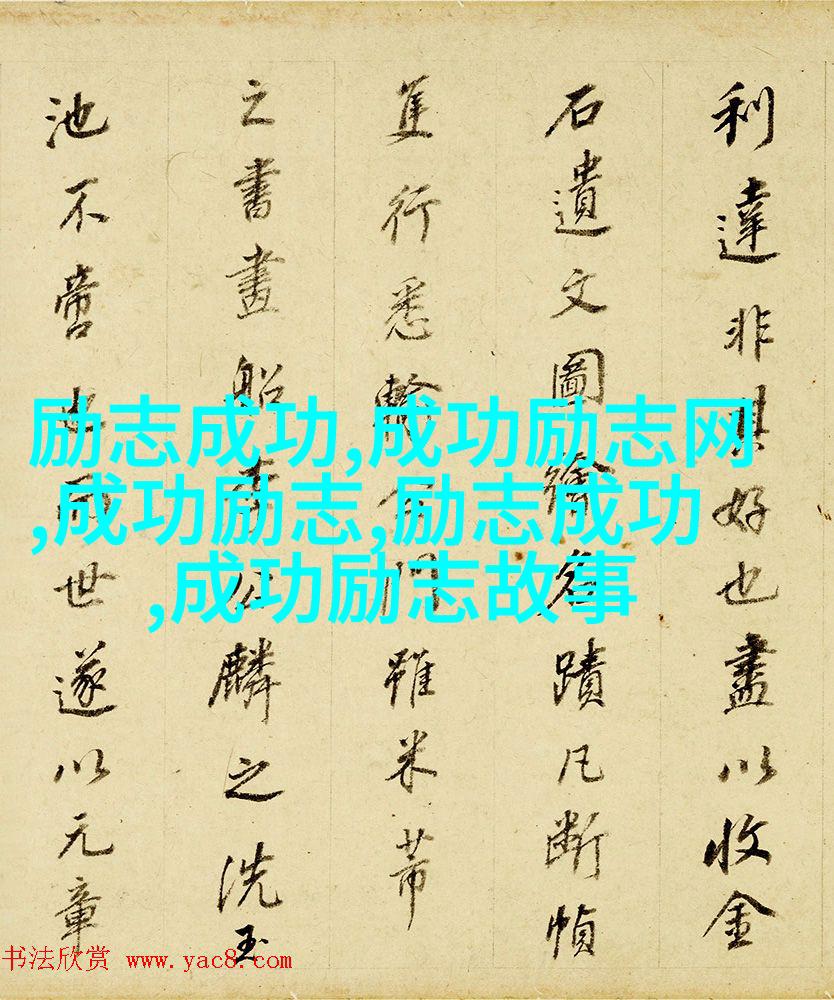 利達非其好也盡以收金
石遺文圖繪名蹟凡斷幀
隻行悉輸門雖米芾
之書畫船李公麟之洗玉
池不啻也世遂以元章
励志成功,成功励志网
,成功励志,励志成功
,成功励志故事
书法欣赏 www.yac8.com